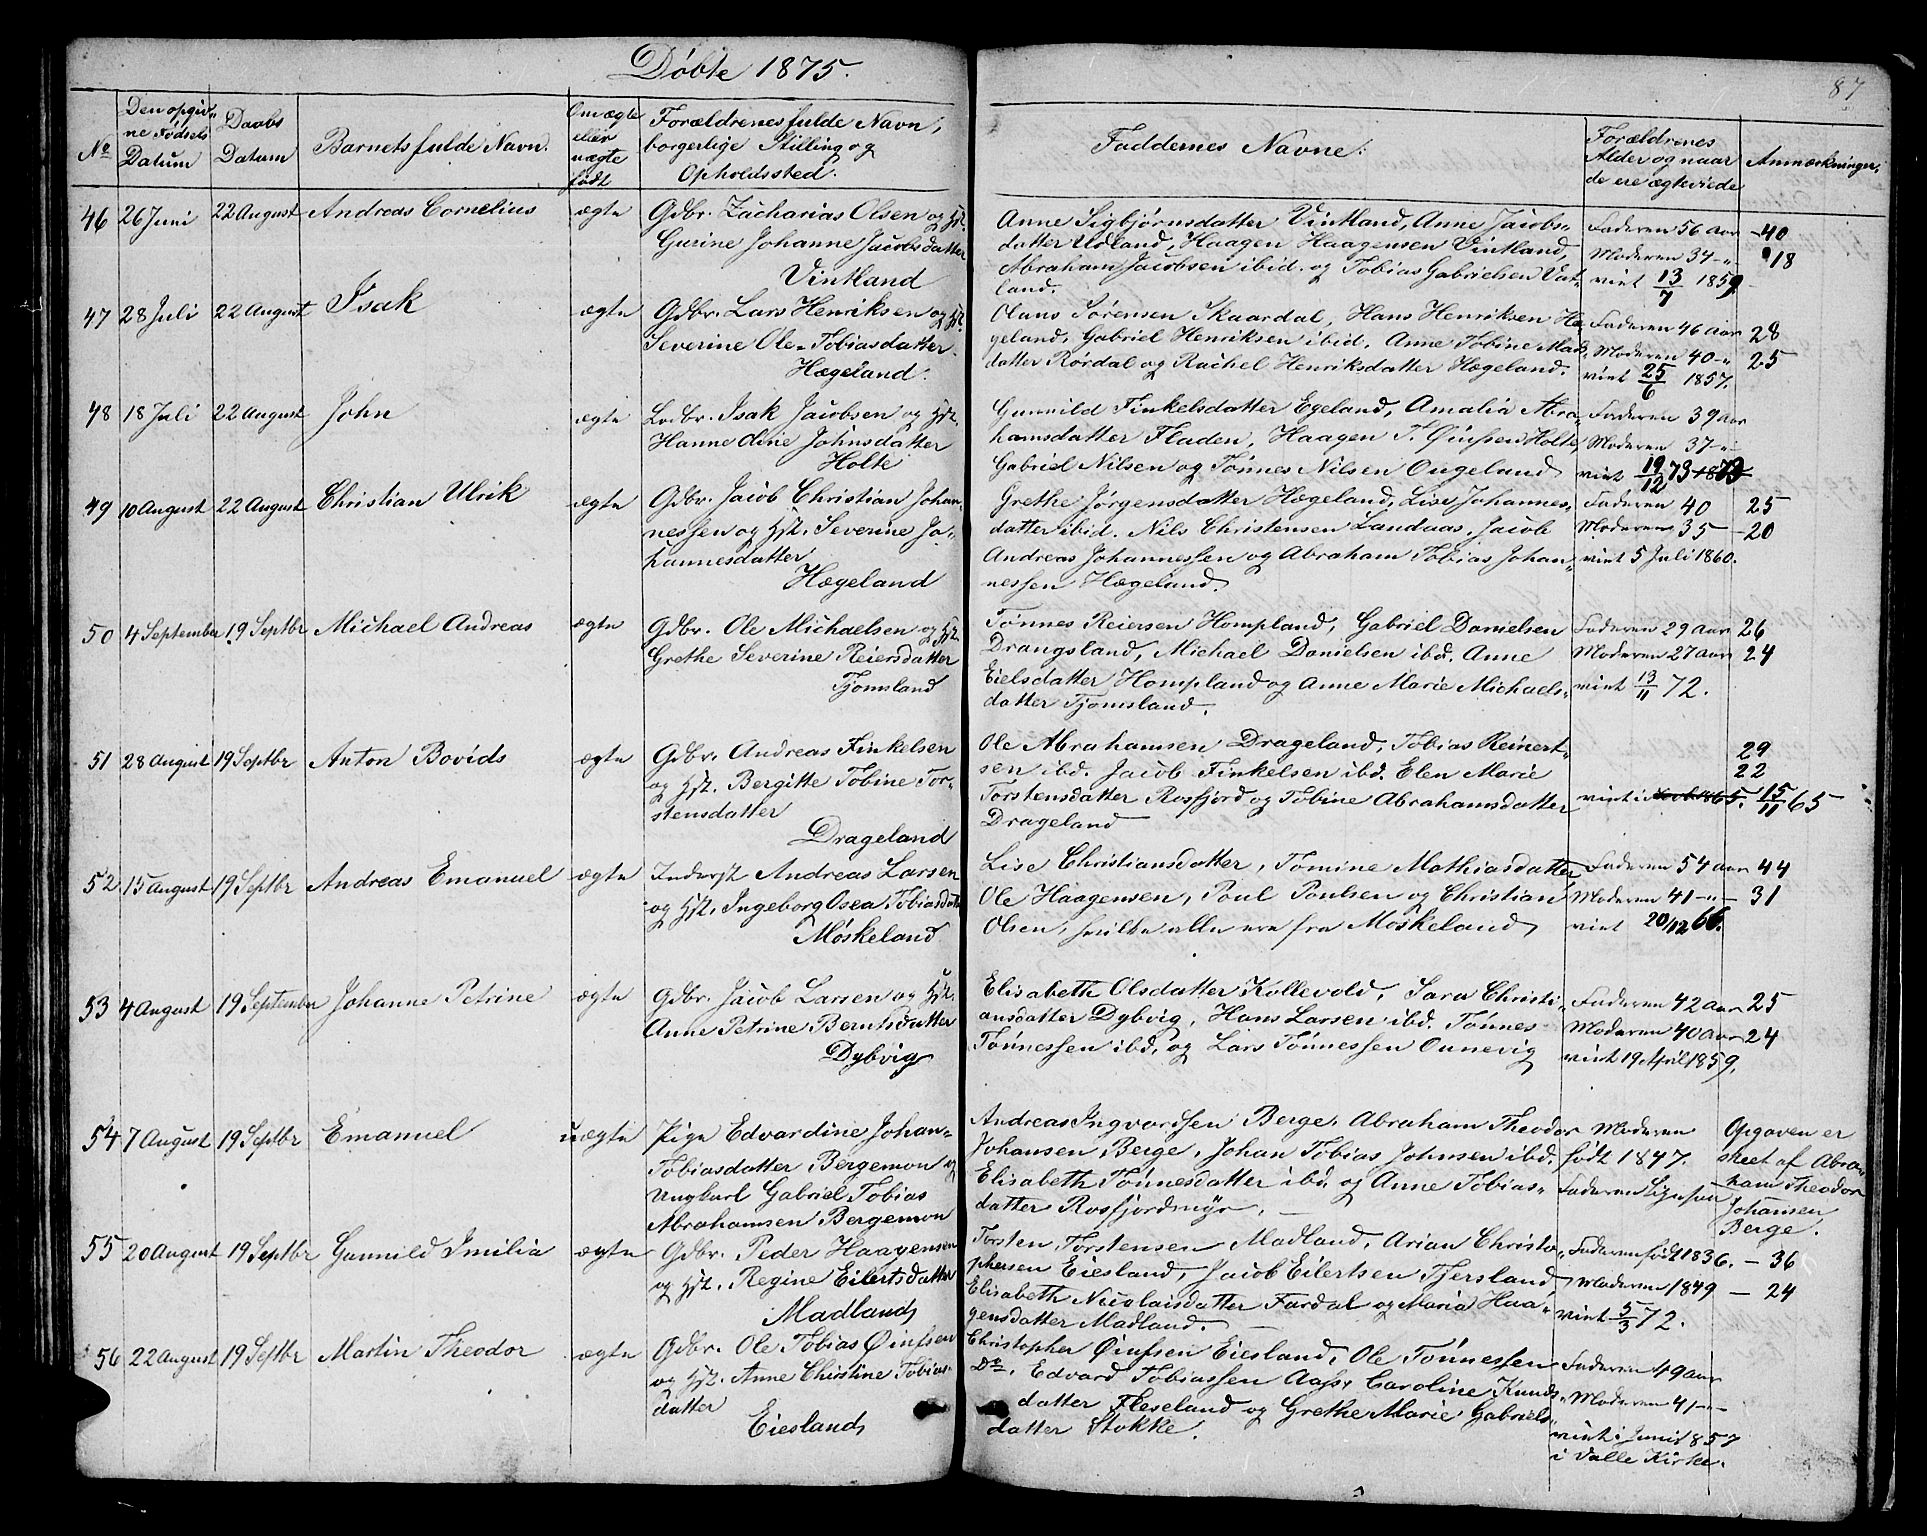 Døbte 1875.
87
No
Den opgiv-
ne Fødsels
Datum
Daabs
Datum
Barnets fulde Navn.
Om ægte
eller
uægte
født
Forældrenes fulde Navn,
borgerlige Stilling og
Opholdssted.
Faddernes Navne.
Forældrenes
Alder og naar
de ere ægteviede
Anmærkninger
46 26 Juni 22 August Andreas Cornelius ægte
Gdbr. Zacharias Olsen og Hst.
Gurine Johanne Jacobsdatter
Vintland
Anne Sigbjørnsdatter Vintland, Anne Jacobs-
datter Udland, Haagen Haagensen Vintland,
Abraham Jacobsen ibid. og Tobias Gabrielsen Vat-
land.
Faderen 56 Aar - 40
Moderen 34 -"- 18
viet 13/7 1859
47 28 Juli 22 August Isak ægte
Gdbr. Lars Henriksen og Hst.
Severine Ole-Tobiasdatter
Hægeland.
Olaus Sørensen Skaardal, Hans Henriksen Hæ-
geland, Gabriel Henriksen ibid. Anne Tobine Mads-
datter Rørdal og Rachel Henriksdatter Hægeland.
Faderen 46 Aar 28
Moderen 40 -"- 25
viet 25/6 1857.
48 18 Juli 22 August John ægte
Ledbr. Isak Jacobsen og Hst.
Hanne Oline Johnsdatter
Holte
Gunnild Finkelsdatter Egeland, Amalia Abra-
hamsdatter Fladen, Haagen T. Øiufsen Holte,
Gabriel Nilsen og Tønnes Nilsen Ougeland
Faderen 39 Aar
Moderen 37 -"-
viet 19/12 73 1873
49 10 August 22 August Christian Ulrik ægte
Gdbr. Jacob Christian Johan-
nessen og Hst. Severine Jo-
hannesdatter
Hægeland
Grethe Jørgensdatter Hægeland, Lise Johannes-
datter ibid. Nils Christensen Landaas, Jacob
Andreas Johannessen og Abraham Tobias Johan-
nessen Hægeland.
Faderen 40 25
Moderen 35 - 20
viet 5 Juli 1860.
50 4 September 19 Septbr Michael Andreas ægte
Gdbr. Ole Michaelsen og Hst.
Grethe Severine Reiersdatter
Tjomsland
Tønnes Reiersen Hompland, Gabriel Danielsen
Drangsland, Michael Danielsen ibd. Anne
Eielsdatter Hompland og Anne Marie Michaels-
datter Tjomsland.
Faderen 29 Aar 26
Moderen 27 Aar 24
viet 13/11 72.
51 28 August 19 Septbr Anton Bovids ægte
Gdbr. Andreas Finkelsen
og Hst. Bergitte Tobine Tor-
stensdatter
Drageland
Ole Abrahamsen Drageland, Tobias Reinert-
sen ibd. Jacob Finkelsen ibd. Elen Marie
Torstensdatter Rosfjord og Tobine Abrahamsdatter
Drageland
29
22
viet i 1865. 15/11 65
52 15 August 19 Septbr Andreas Emanuel ægte
Inderst Andreas Larsen
og Hst. Ingeborg Osea Tobiasdatt
Møskeland
Lise Christiansdatter, Tomine Mathiasdatter
Ole Haagensen, Poul Poulsen og Christian
Olsen, hvilke alle ere fra Møskeland
Faderen 54 Aar 44
Moderen 41 -"- 31
viet 20/12 66.
53 4 August 19 September Johanne Petrine ægte
Gdbr. Jacob Larsen og Hst.
Anne Petrine Berntsdatter
Dybvig
Elisabeth Olsdatter Kollevold, Sara Christi-
ansdatter Dybvig, Hans Larsen ibd. Tønnes
Tønnessen ibd. og Lars Tønnessen Ounevig
Faderen 42 Aar 25
Moderen 40 Aar 24
viet 19 April 1859.
54 7 August 19 Septbr Emanuel uægte
Pige Edvardine Johan-
Tobiasdatter Bergemon og
Ungkarl Gabriel Tobias
Abrahamsen Bergemon
Andreas Ingvardsen Berge, Abraham Theodor
Johansen Berge, Johan Tobias Johnsen ibd.
Elisabeth Tønnesdatter ibd. og Anne Tobias-
datter Rosfjordmyr.
Moderen
født 1847.
Faderen
Opgaven er
skeet af Abra-
ham Theodor
Johansen
Berge.
55 20 August 19 Septbr Gunnild Imilia ægte
Gdbr. Peder Haagensen
og Hst. Regine Eilertsdatter
Madland
Torsten Torstensen Madland, Arian Christo-
phersen Eiesland, Jacob Eilertsen Tjersland
Elisabeth Nicolaisdatter Fardal og Maria Haa-
gensdatter Madland.
Faderen født 1836. - 36
Moderen 1849 - 24
viet 5/3 72.
56 22 August 19 Septbr Martin Theodor ægte
Gdbr. Ole Tobias Øiufsen
og Hst. Anne Christine Tobias-
datter
Eiesland
Christopher Øiufsen Eiesland, Ole Tønnessen
Do. Edvard Tobiassen Aas, Caroline Knuds-
datter Fleseland og Grethe Marie Gabriels-
datter Stokke.
Faderen 49 Aar
Moderen 41 -"-
viet i Juni 1857
i Valle Kirke.